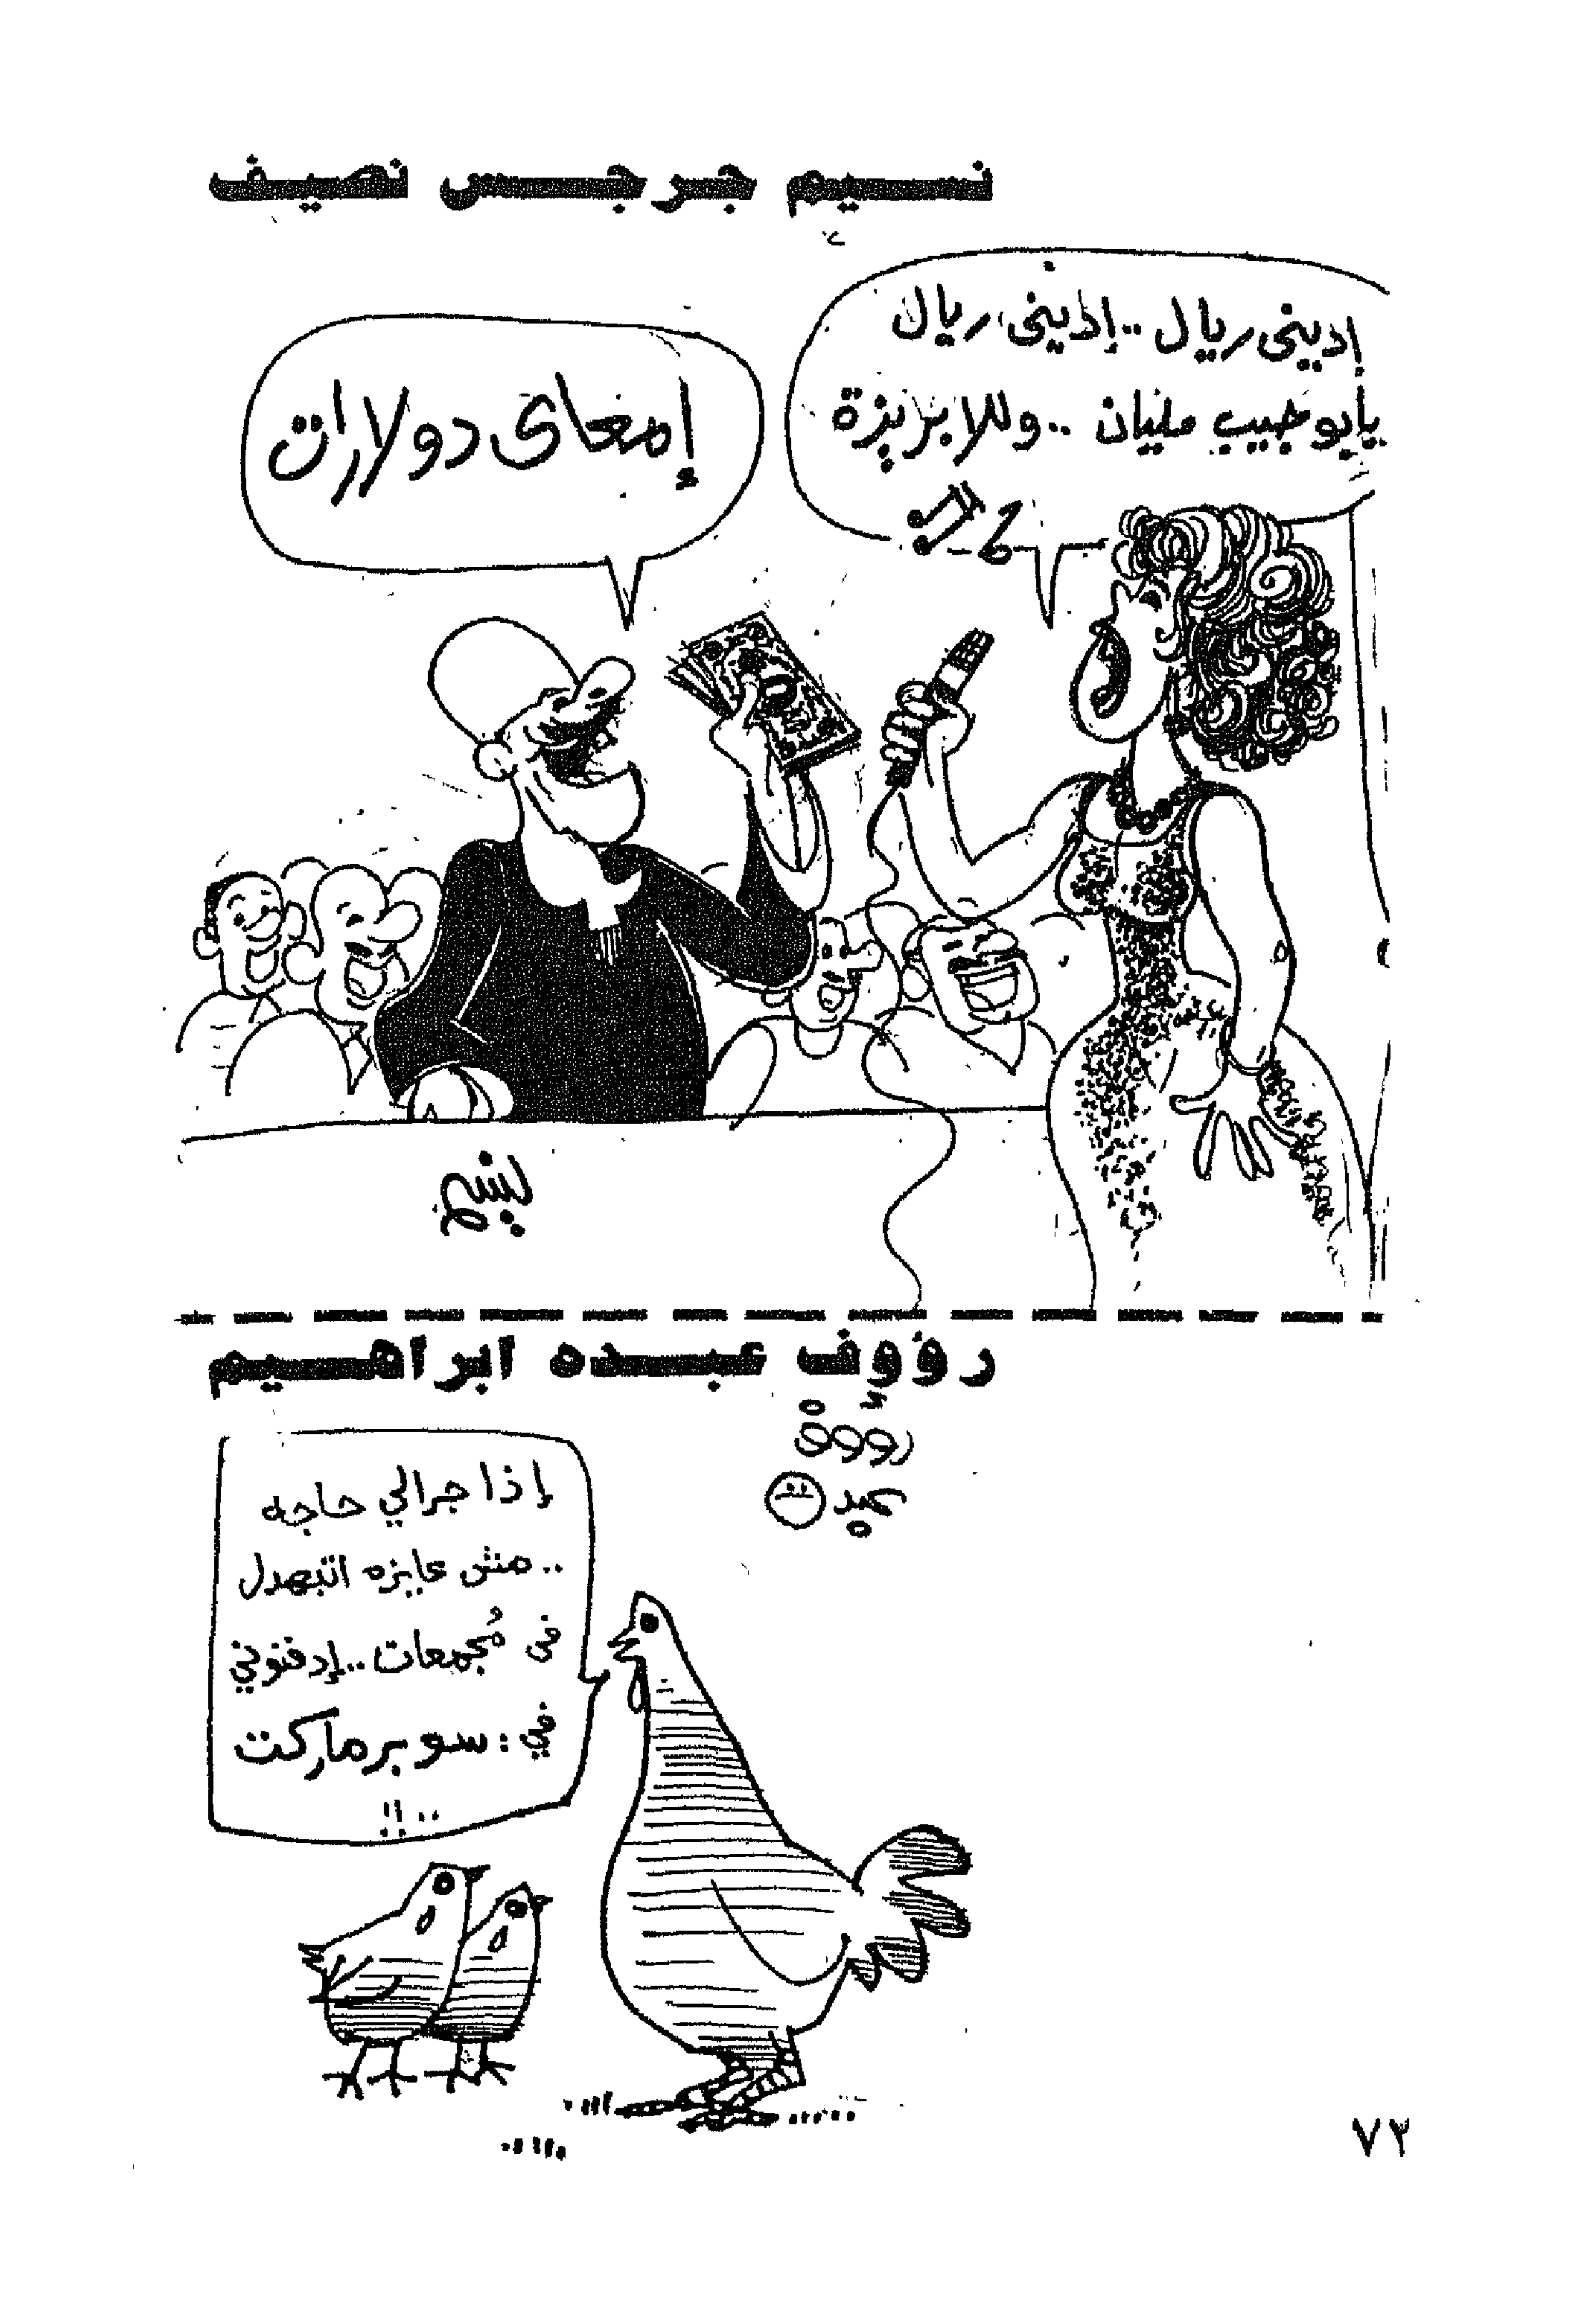 نسيم جرجس نصيف
إديني ريال .. إديني ريال
يابو جيب مليان .. وللا بريزة
إمعاى دولارات
نسيم
رؤوف عبده ابراهيم
رؤوف
عبده
إذا جرالي حاجه
.. مش عايزه اتبهدل
فى مُجمعات .. إدفنوني
في : سوبر ماركت
.. !!
٧٢